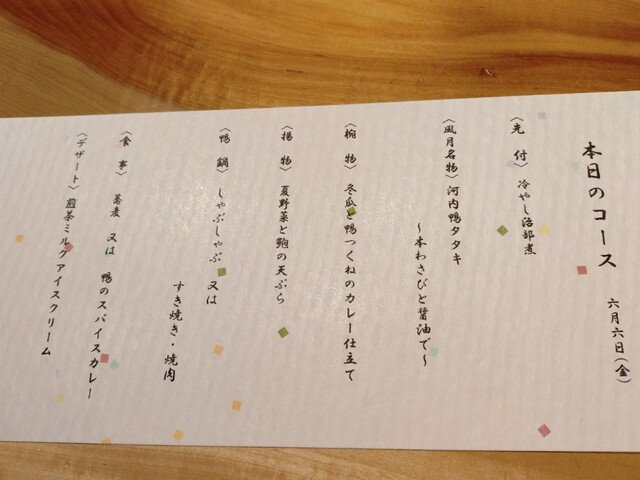 本日のコース
六月六日(金)
〈先付〉冷やし治部煮
〈風月名物〉河内鴨タタキ
〜本わさびと醤油で〜
〈椀物〉冬瓜と鴨つくねのカレー仕立て
〈揚物〉夏野菜と鮑の天ぷら
〈鴨鍋〉しゃぶしゃぶ 又は
すき焼き・焼肉
〈食事〉蕎麦 又は 鴨のスパイスカレー
〈デザート〉煎茶ミルクアイスクリーム